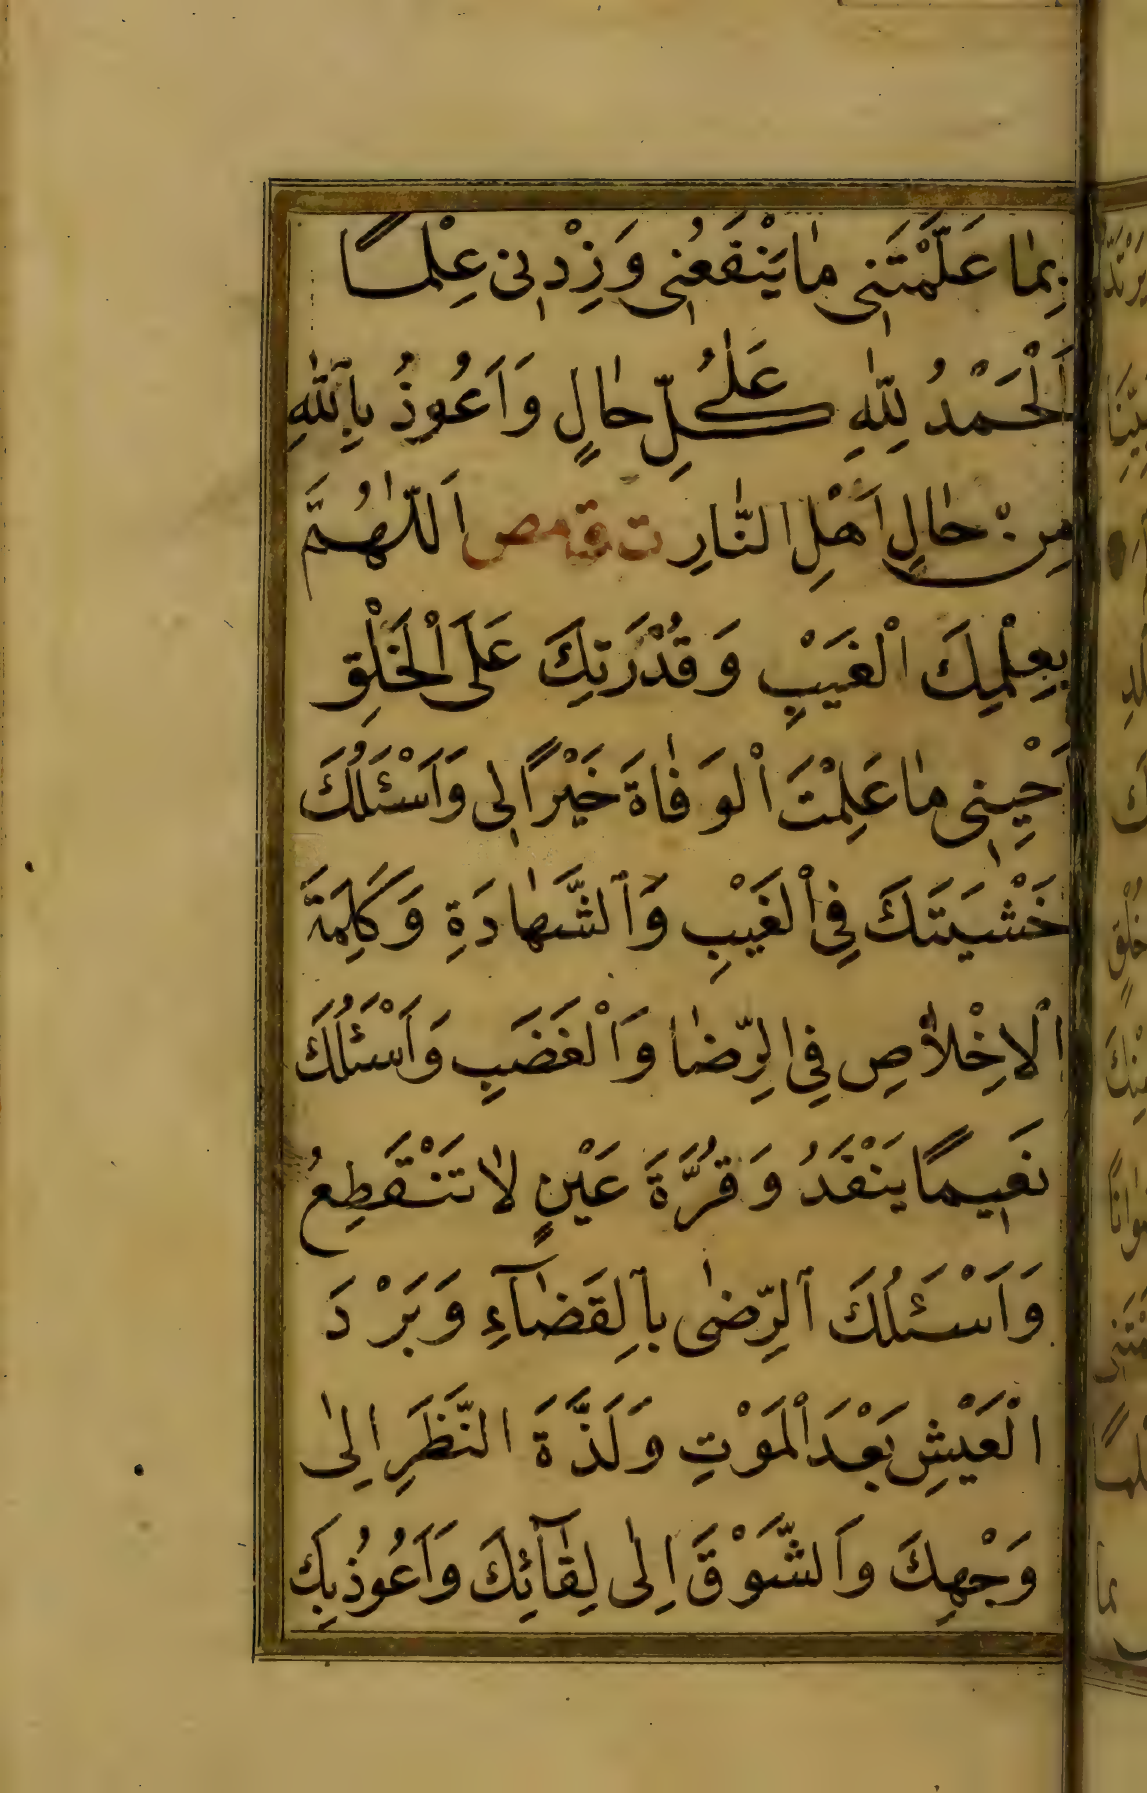 بِمٰا عَلَّمْتَنٖى مٰا يَنْفَعُنٖى وَ زِدْنٖى عِلْماً
اَلْحَمْدُ لِلّٰهِ عَلٰى كُلِّ حٰالٍ وَاَعُوذُ بِاللّٰهِ
مِنْ حٰالِ اَهْلِ النّٰارِ ت ق مص اَللّٰهُمَّ
بِعِلْمِكَ الْغَيْبِ وَ قُدْرَتِكَ عَلَى الْخَلْقِ
اَحْيِنٖى مٰا عَلِمْتَ الْوَفٰاةَ خَيْراً لٖى وَاَسْئَلُكَ
خَشْيَتَكَ فِى الْغَيْبِ وَالشَّهٰادَةِ وَكَلِمَةَ
الْاِخْلٰاصِ فِى الرِّضٰا وَالْغَضَبِ وَاَسْئَلُكَ
نَعٖيماً يَنْفَدُ وَ قُرَّةَ عَيْنٍ لٰا تَنْقَطِعُ
وَاَسْئَلُكَ الرِّضٰى بِالْقَضٰآءِ وَ بَرْدَ
الْعَيْشِ بَعْدَ الْمَوْتِ وَ لَذَّةَ النَّظَرِ اِلٰى
وَجْهِكَ وَالشَّوْقَ اِلٰى لِقٰآئِكَ وَاَعُوذُ بِكَ